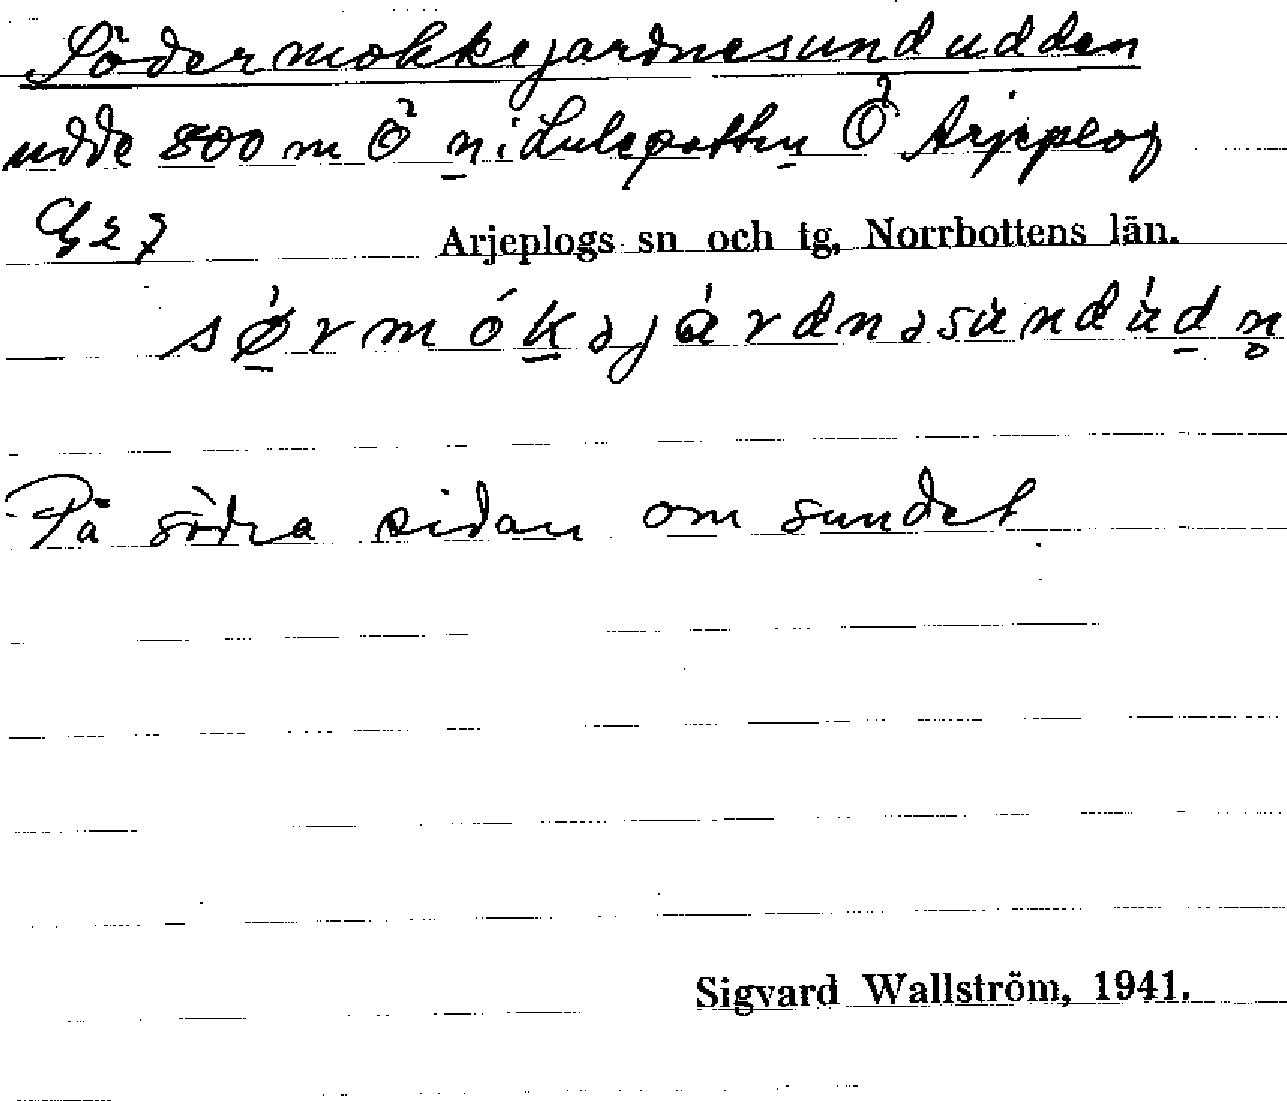 Södermokkejardnesundudden
udde 800 m Ö n i Lulepotten Ö Arjeplog
G 27
Arjeplogs sn och tg, Norrbottens län.
På södra sidan om sundet
Sigvard Wallström, 1941.